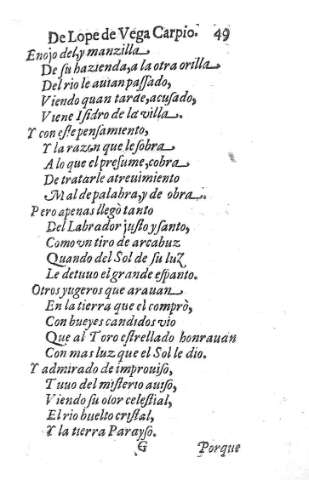 De Lope de Vega Carpio. 49
Enojo del, y manzilla
De su hazienda, a la otra orilla
Del rio le auian passado,
Viendo quan tarde, acusado,
Viene Isidro de la villa.
Y con este pensamiento,
Y la razon que le sobra
A lo que el presume, cobra
De tratarle atreuimiento
Mal de palabra, y de obra.
Pero apenas llegò tanto
Del Labrador justo y santo,
Como vn tiro de arcabuz
Quando del Sol de su luz
Le detuuo el grande espanto.
Otros yugeros que arauan
En la tierra que el comprò,
Con bueyes candidos vio
Que al Toro estrellado honrauan
Con mas luz que el Sol le dio.
Y admirado de improuiso,
Tuuo del misterio auiso,
Viendo su olor celestial,
El rio buelto cristal,
Y la tierra Parayso.
G Porque